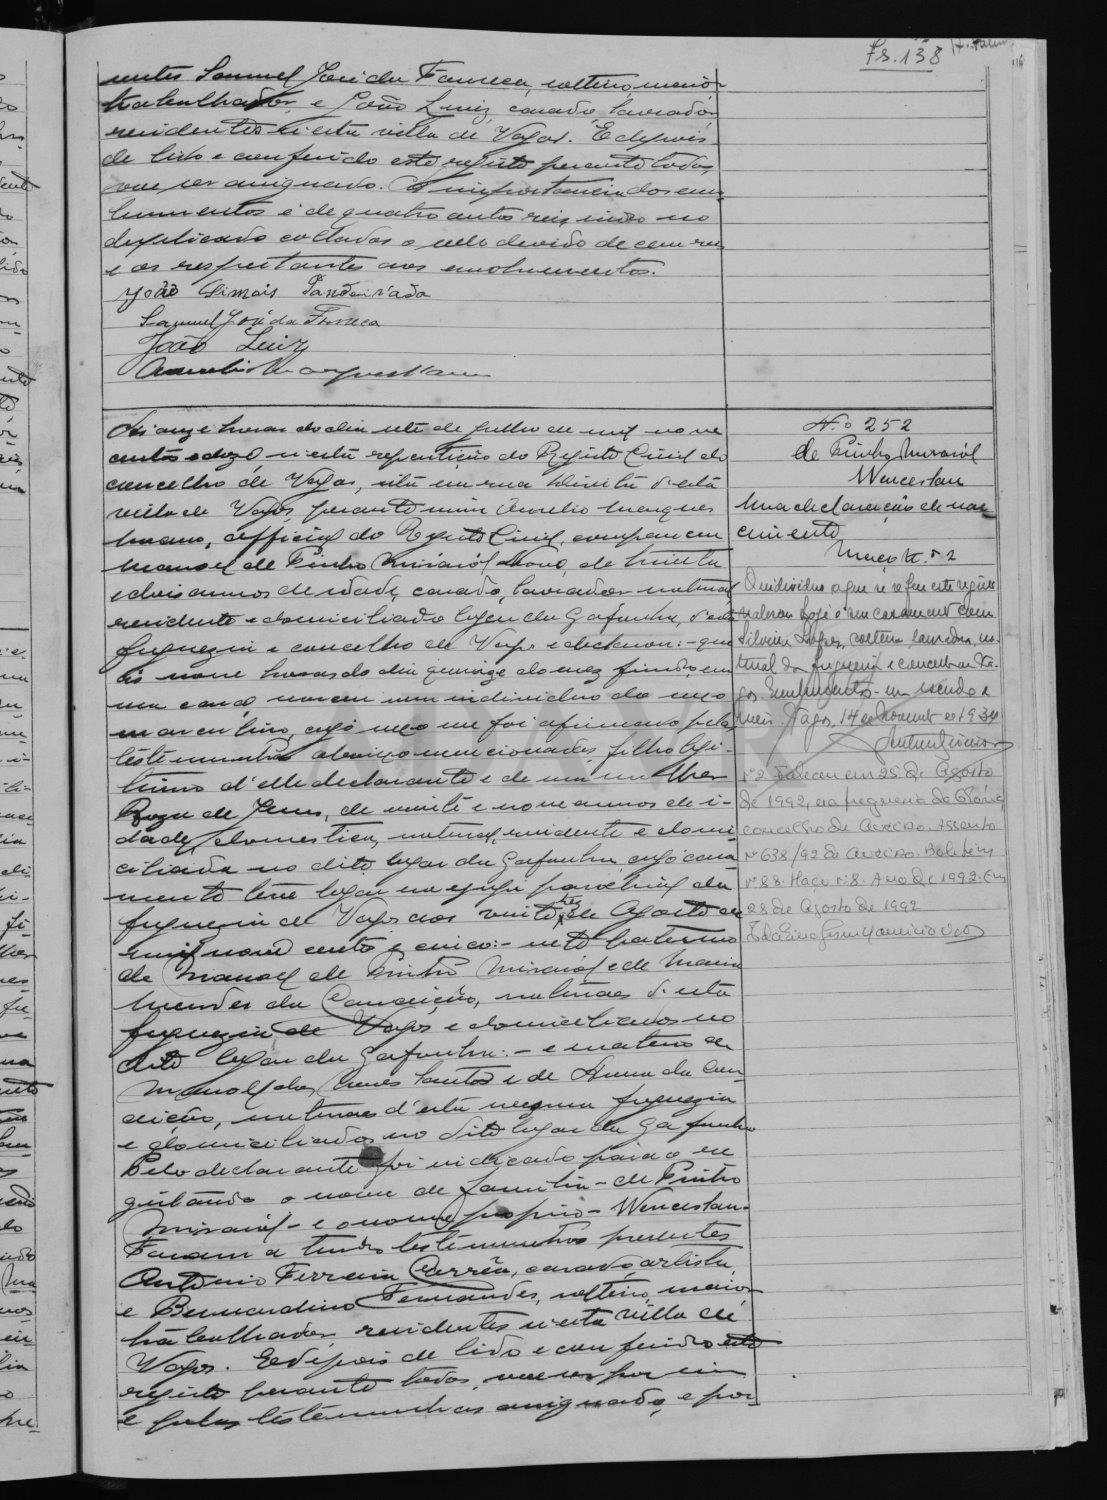 Fs. 138
nntes Samuel José da Fonseca, solteiro, maior
trabalhador, e João Luiz, casado, lavrador
residentes n'esta villa de Vagos. E depois
de lido e conferido este registo perante todos,
vae ser assignado. A importancia dos emo-
lumentos é de quatro centos reis indo no
duplicado collados o sello devido de cem reis
e os respeitantes aos emolumentos.
João Simões Pandeirada
Samuel José da Fonseca
João Luiz
Aurelio Marques Mano
Ás onze horas do dia sete de Julho de mil nove
centos e doze n'esta repartição do Registo Civil do
concelho de Vagos, sita em rua Direita d'esta
villa de Vagos, perante mim Aurelio Marques
Mano, official do Registo Civil, compareceu
Manoel de Pinho Novo, de trinta
e dois annos de idade, casado, lavrador natural
residente e domiciliado logar da Gafanha, d'esta
freguezia e concelho de Vagos e declarou: - que
ás nove horas do dia quinze do mez findo, em
sua casa nasceu um individuo do sexo
masculino, cujo sexo me foi afirmado pelas
testemunhas abaixo mencionadas, filho legi-
timo d'elle declarante e de sua mulher
Roza de Jesus, de vinte e nove annos de i-
dade, domestica, natural, residente e domi-
ciliada no dito logar da Gafanha cujo casa-
mento teve logar na egreja parochial da
freguezia de Vagos aos vinte de Agosto de
mil nove centos e cinco: - neto paterno
de Manoel de Pinho e de Maria
Mendes da Conceição, naturaes d'esta
freguezia de Vagos e domiciliados no
dito logar da Gafanha: - e materno de
Manoel dos Santos e de Anna da Con-
ceição, naturaes d'esta mesma freguezia
e domiciliados no dito logar da Gafanha
Pelo declarante foi indicado para o re
gistando o nome de familia - de Pinho
- e o nome proprio - Wenceslau.
Foram a tudo testemunhas presentes
Antonio Ferreira Corrêa, casado, artista,
e Bernardino Fernandes, solteiro, maior
trabalhador residentes n'esta villa de
Vagos. E depois de lido e conferido este
registo perante todos, vae ser por mim
e pelas testemunhas assignado, e por-
N.º 252
de Pinho
Wenceslau
Uma declaração de nas
cimento
Maço N.º 2
O individuo a que se refere este registo
realizou hoje o seu casamento com
Silveira Lopes, solteira, na
tural da freguezia e concelho de Va-
gos. Emolumentos - um escudo e
meio. Vagos, 14 de Novembro de 1934
nº2 Faleceu em 25 de Agosto
de 1992, na freguesia da Glória
concelho de Aveiro. Assento
nº 638/92 de Aveiro. Boletim
nº 88. Maço nº 8. Ano de 1992. Em
28 de Agosto de 1992